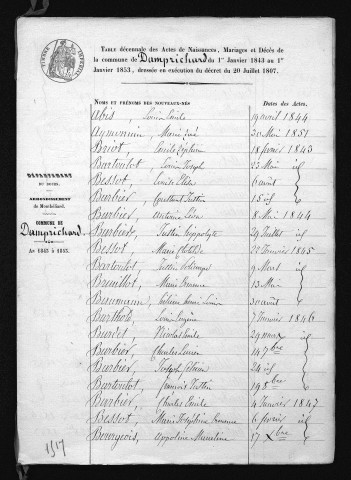 TIMBRE IMPÉRIAL
TABLE décennale des Actes de Naissances, Mariages et Décès de
la commune de Damprichard du 1er Janvier 1843 au 1er
Janvier 1853, dressée en exécution du décret du 20 Juillet 1807.
DÉPARTEMENT
DU DOUBS.
ARRONDISSEMENT
de Montbéliard.
COMMUNE DE
Damprichard.
AN 1843 à 1853.
NOMS ET PRÉNOMS DES NOUVEAUX-NÉS Dates des Actes.
Abis, Louis Émile 19 avril 1844
Aymonin, Marie 30 Mai 1851
Briot, Émile 18 février 1843
Bartoulot, Louis Joseph 23 Mai id
Bessot, Émile 6 août id
Barbier, Justin 15 id
Barbier, Antoine 8 Mai 1844
Barbier, Justin hippolyte 29 Juillet id
Bessot, Marie Clotilde 22 Janvier 1845
Bartoulot, Justin 9 Mars id
Bruillot, Marie 13 Mai id
Baumann, Louis 30 août id
Barthod, Louis Eugène 7 Janvier 1846
Burdet, Nicolas Émile 29 mars id
Barbier, Charles 14 7bre id
Barbier, Joseph 24 id
Bartoulot, francois Justin 19 8bre id
Barbier, Charles Émile 4 Janvier 1847
Bessot, Marie Joséphine 6 février id
Bourgeois, Appoline 17 Xbre id
1517